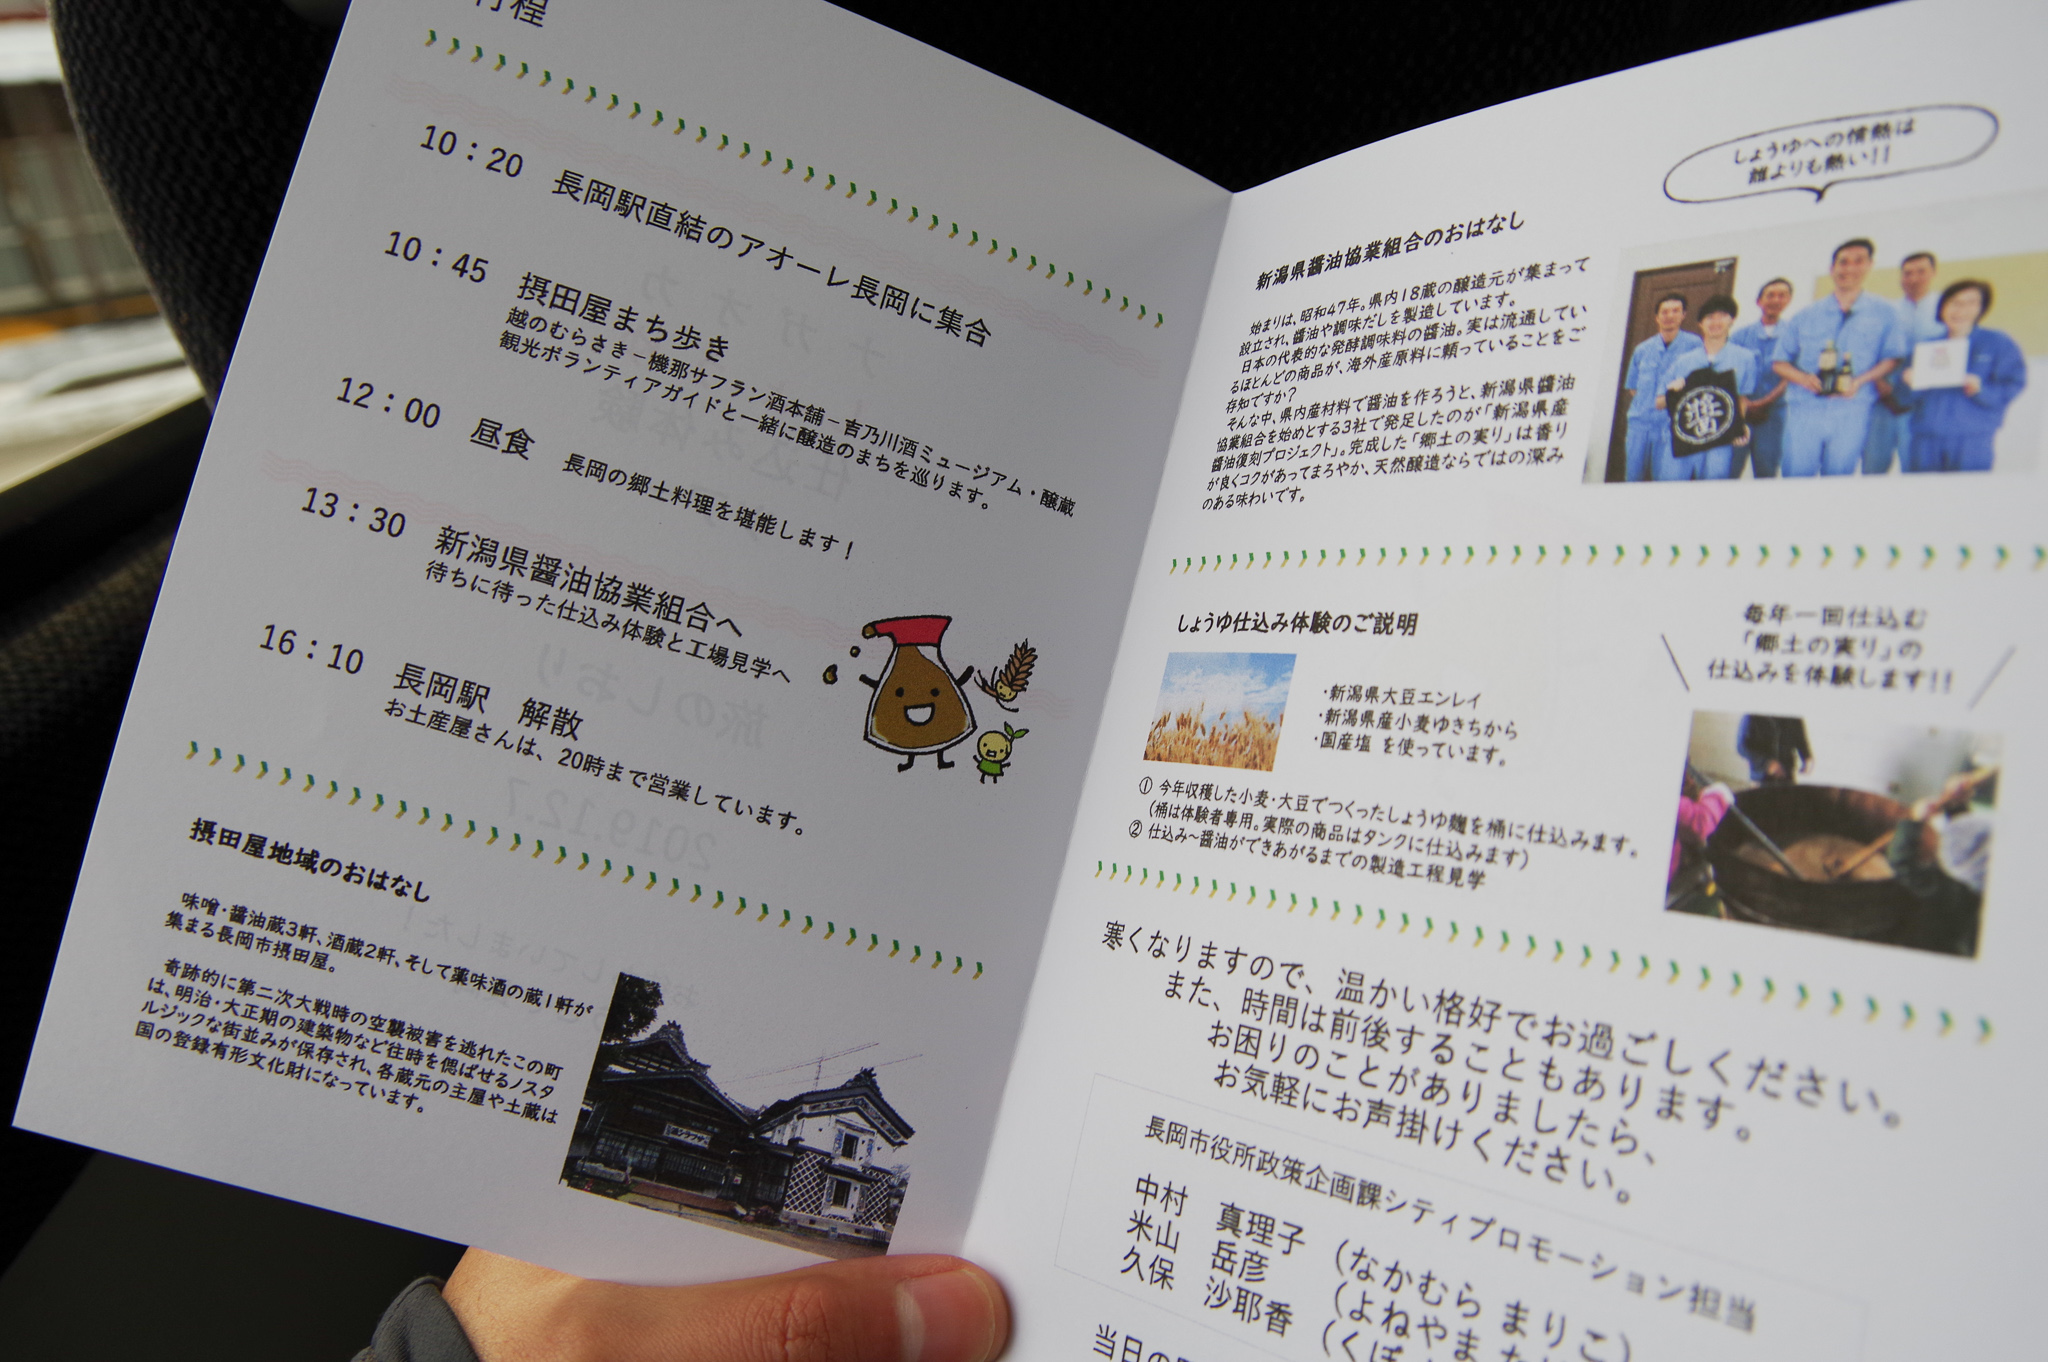 行程
10：20 長岡駅直結のアオーレ長岡に集合
10：45 摂田屋まち歩き
越のむらさき－機那サフラン酒本舗－吉乃川酒ミュージアム・醸蔵
観光ボランティアガイドと一緒に醸造のまちを巡ります。
12：00 昼食
長岡の郷土料理を堪能します！
13：30 新潟県醤油協業組合へ
待ちに待った仕込み体験と工場見学へ
16：10 長岡駅 解散
お土産屋さんは、20時まで営業しています。
摂田屋地域のおはなし
味噌・醤油蔵3軒、酒蔵2軒、そして薬味酒の蔵1軒が
集まる長岡市摂田屋。
奇跡的に第二次大戦時の空襲被害を逃れたこの町
は、明治・大正期の建築物など往時を偲ばせるノスタ
ルジックな街並みが保存され、各蔵元の主屋や土蔵は
国の登録有形文化財になっています。
しょうゆへの情熱は
誰よりも熱い!!
新潟県醤油協業組合のおはなし
始まりは、昭和47年。県内18蔵の醸造元が集まって
設立され、醤油や調味だしを製造しています。
日本の代表的な発酵調味料の醤油。実は流通してい
るほとんどの商品が、海外産原料に頼っていることをご
存知ですか？
そんな中、県内産材料で醤油を作ろうと、新潟県醤油
協業組合を始めとする3社で発足したのが「新潟県産
醤油復刻プロジェクト」。完成した「郷土の実り」は香り
が良くコクがあってまろやか、天然醸造ならではの深み
のある味わいです。
醤
しょうゆ仕込み体験のご説明
・新潟県大豆エンレイ
・新潟県産小麦ゆきちから
・国産塩 を使っています。
毎年一回仕込む
「郷土の実り」の
仕込みを体験します!!
① 今年収穫した小麦・大豆でつくったしょうゆ麹を桶に仕込みます。
（桶は体験者専用。実際の商品はタンクに仕込みます）
② 仕込み～醤油ができあがるまでの製造工程見学
寒くなりますので、温かい格好でお過ごしください。
また、時間は前後することもあります。
お困りのことがありましたら、
お気軽にお声掛けください。
長岡市役所政策企画課シティプロモーション担当
中村 真理子 （なかむら まりこ）
米山 岳彦 （よねやま
久保 沙耶香 （くぼ
当日の